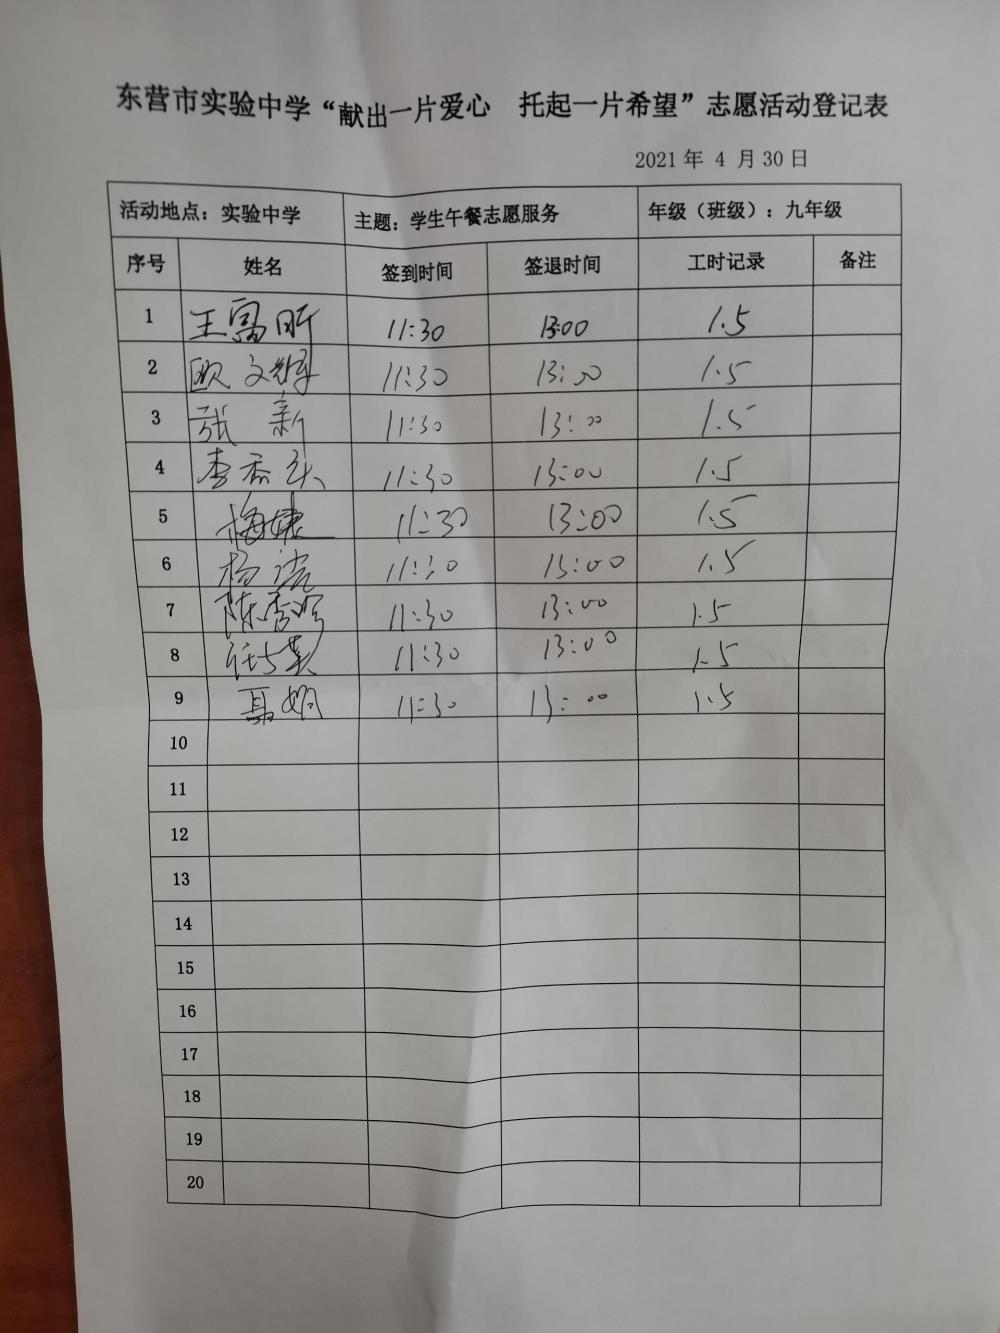 东营市实验中学“献出一片爱心 托起一片希望”志愿活动登记表
2021 年 4 月 30 日
活动地点：实验中学 主题：学生午餐志愿服务 年级（班级）：九年级
序号 姓名 签到时间 签退时间 工时记录 备注
1 王富昕 11:30 13:00 1.5
2 欧文辉 11:30 13:00 1.5
3 张新 11:30 13:00 1.5
4 李香兵 11:30 13:00 1.5
5 梅婕 11:30 13:00 1.5
6 杨 11:30 13:00 1.5
7 陈秀 11:30 13:00 1.5
8 11:30 13:00 1.5
9 聂娟 11:30 13:00 1.5
10
11
12
13
14
15
16
17
18
19
20